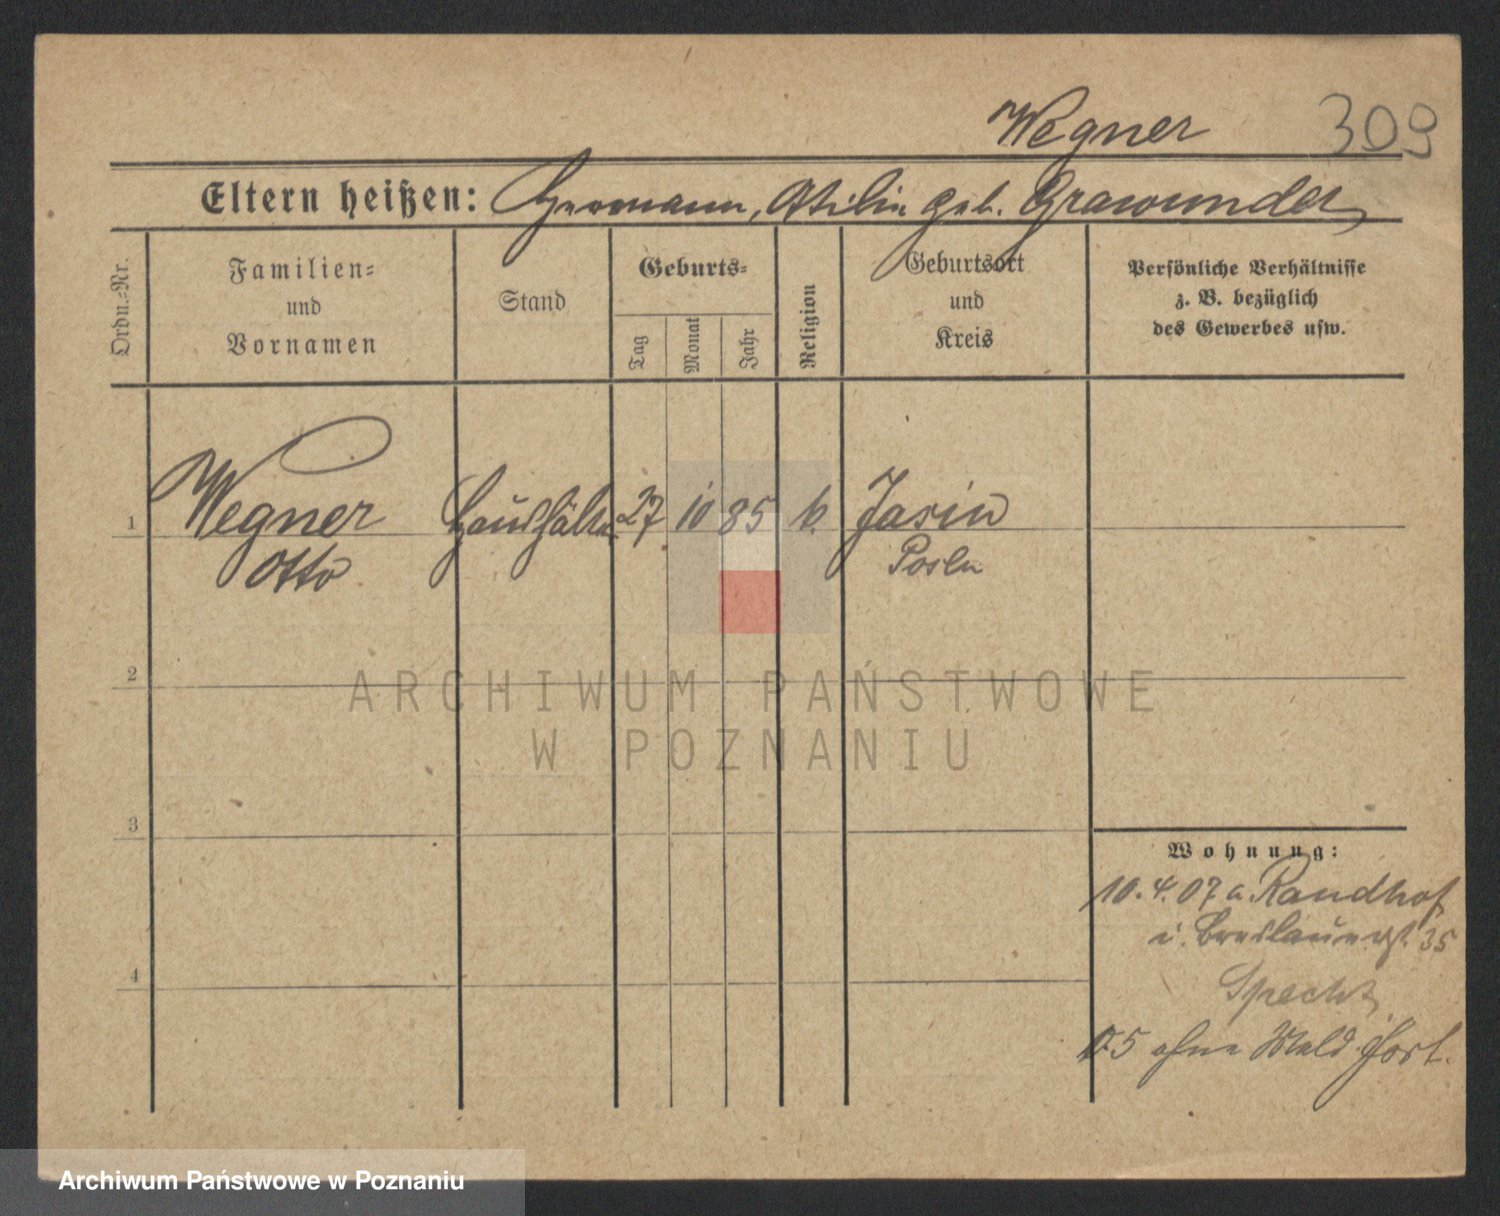 Wegner 309
Eltern heißen: Hermann, Otilie geb. Grawunder
Ordn.-Nr.
Familien-
und
Vornamen
Stand
Geburts-
Tag
Monat
Jahr
Religion
Geburtsort
und
Kreis
Persönliche Verhältnisse
z. B. bezüglich
des Gewerbes usw.
1 Wegner Haushälter 27 10 85 Jasin
Otto Posen
2
3
4
Wohnung:
10.4.07 a. Randhof
i. Breslauerst 35
Specht
ohne Meld. fort.
ARCHIWUM PAŃSTWOWE
W POZNANIU
Archiwum Państwowe w Poznaniu